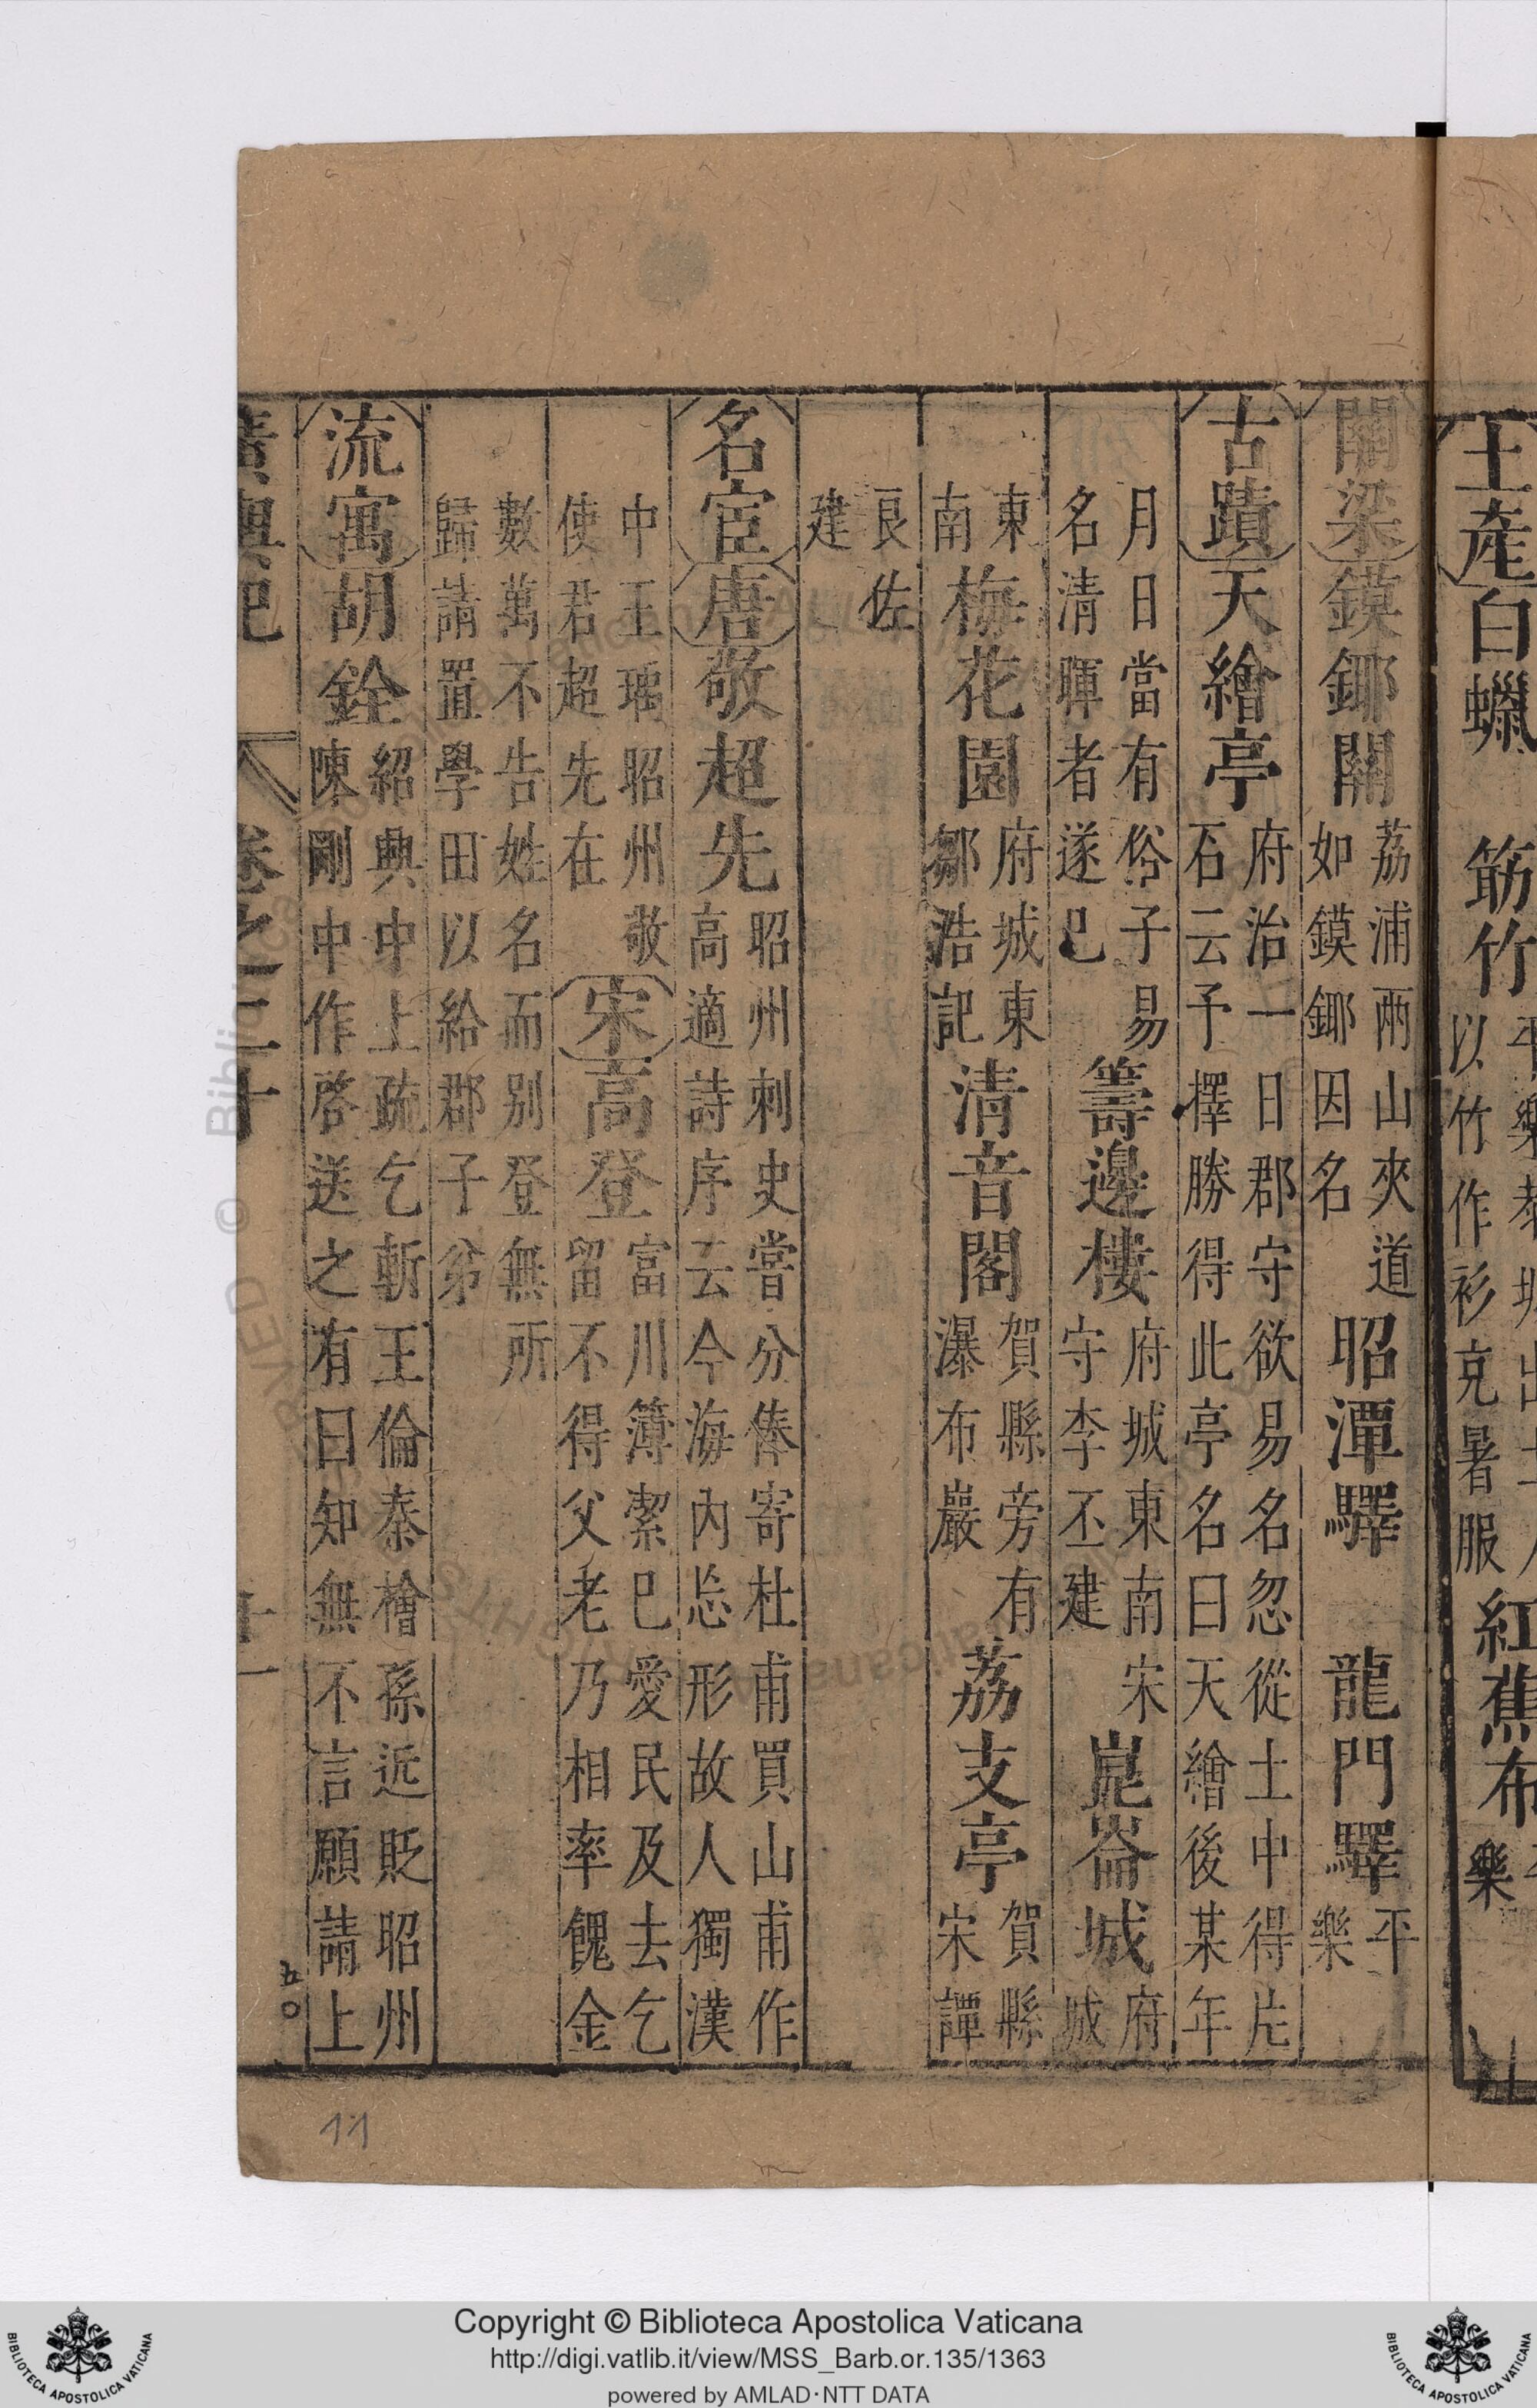 土產 白蠟 筯竹 以竹作衫克暑服 紅蕉布 樂
關梁 鏌鎁關 荔浦兩山夾道如鏌鎁因名 昭潭驛 龍門驛 平樂
古蹟 天繪亭 府治一日郡守欲易名忽從土中得片石云予擇勝得此亭名曰天繪後某年
月日當有俗子易名清暉者遂已 籌邊樓 府城東南宋守李丕建 崑崙城 府城
東南 梅花園 府城東鄒浩記 清音閣 賀縣旁有瀑布巖 荔支亭 賀縣宋譚
良佐建
名宦 唐 敬超先 昭州刺史嘗分俸寄杜甫買山甫作高適詩序云今海內忘形故人獨漢
中王瑀昭州敬使君超先在 宋 高登 富川簿潔已愛民及去乞留不得父老乃相率餽金
數萬不告姓名而别登無所歸請置學田以給郡子弟
流寓 胡銓 紹興中上疏乞斬王倫秦檜孫近貶昭州陳剛中作啓送之有曰知無不言願請上
廣輿記 卷之二十 十一
五〇
11
Copyright © Biblioteca Apostolica Vaticana
http://digi.vatlib.it/view/MSS_Barb.or.135/1363
powered by AMLAD·NTT DATA
BIBLIOTECA APOSTOLICA VATICANA
BIBLIOTECA APOSTOLICA VATICANA